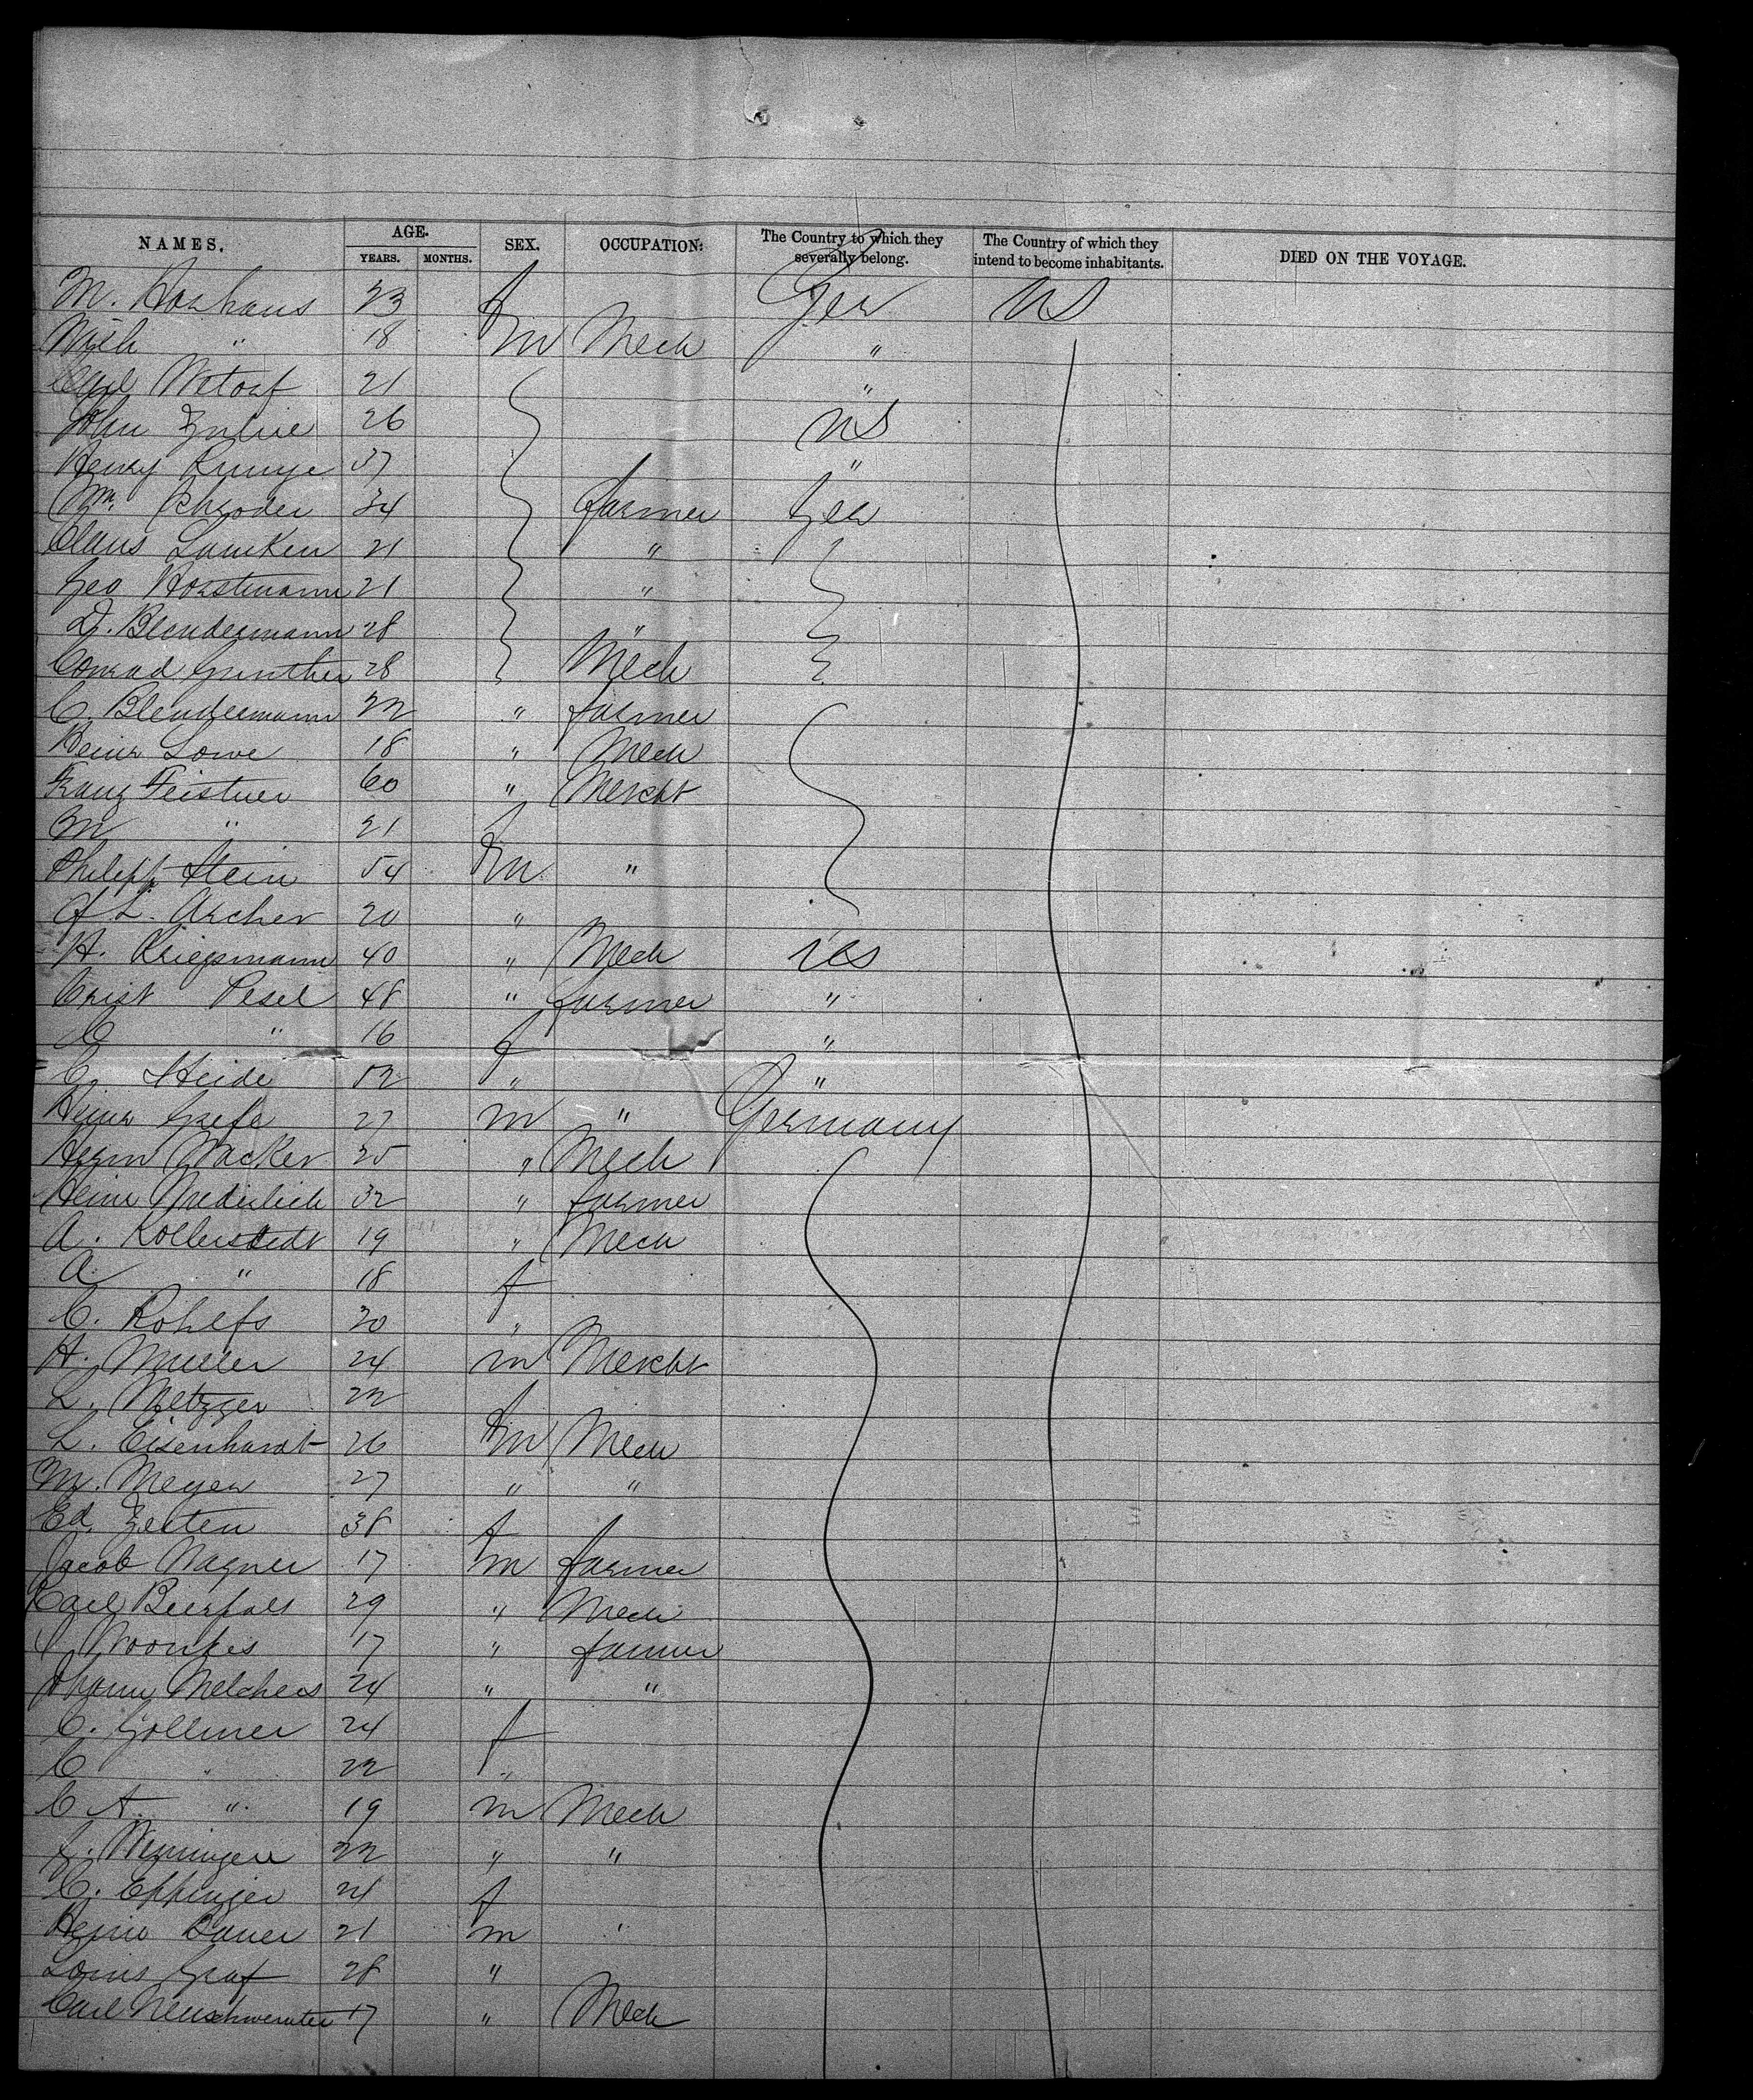 NAMES. AGE. SEX. OCCUPATION: The Country to which they severally belong. The Country of which they intend to become inhabitants. DIED ON THE VOYAGE.
YEARS. MONTHS.
M. 23 f Ger US
" 18 m Mech "
Carl 21 "
John 26 US
Henry Runge 37 "
Wm. Schroder 34 farmer Ger
Claus Lamken 21 "
Geo Horstmann 21 "
D. Blendermann 28 "
Conrad Gunther 28 Mech
C Blendermann 22 " farmer
Heinr Lowe 18 " Mech
Franz Feistner 60 " Mercht
M " 21 f
Philipp Stein 54 m "
L. Archer 20 "
H. Kriegsmann 40 " Mech US
Crist Pesel 48 " farmer "
C " 16 f "
C. Heide 52 " "
Heinr Grefe 27 m " Germany
Herm Wacker 35 " Mech
Heinr 32 " farmer
A. Kollerstedt 19 " Mech
A " 18 f
C. Rohlfs 20 "
H. Muller 24 m Mercht
L. Metzger 22 f
L. Eisenhardt 26 m Mech
M. Meyer 27 " "
Ed. Zerten 38 f
Jacob Wagner 17 m farmer
Carl 29 " Mech
17 " farmer
Melchers 24 " "
C. Gollmer 24 f
C " 22 "
C A " 19 m Mech
22 " "
C. Eppinger 24 f
Heinr Bauer 21 m "
Louis Graf 28 "
Carl Neuschwenter 17 " Mech